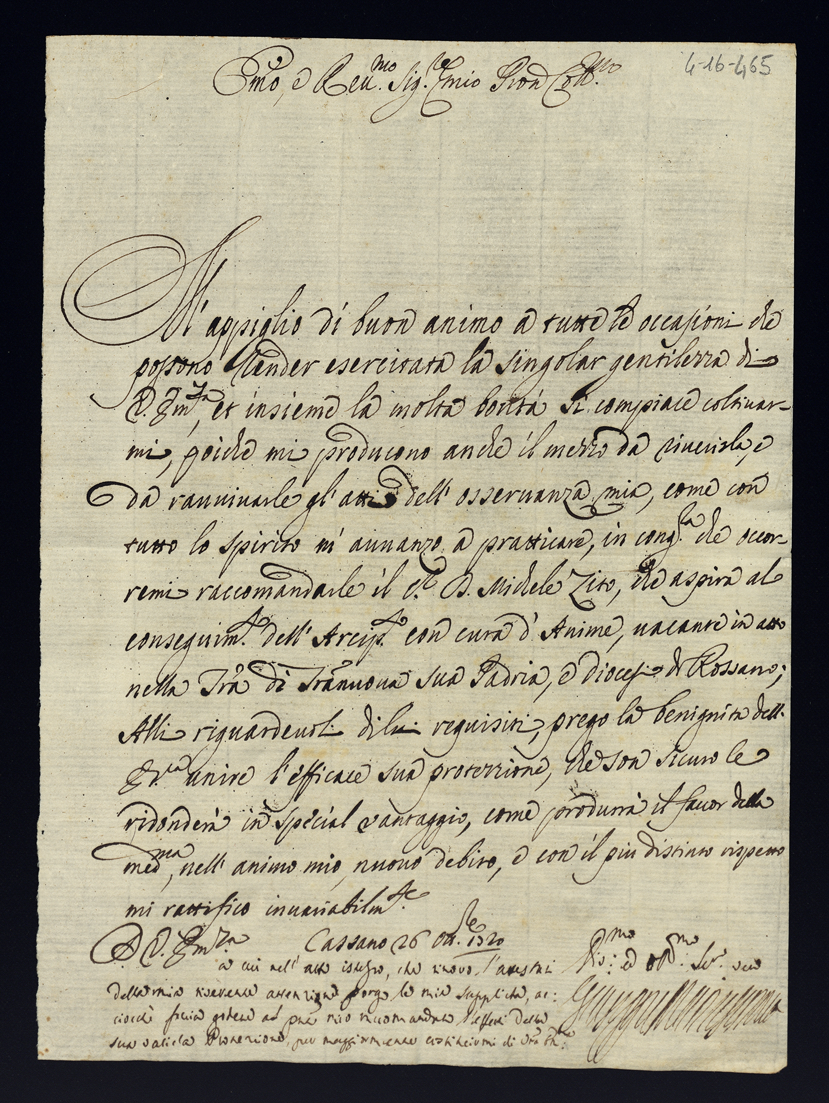 4-16-465
Emo, e Reu.mo Sig.re mio Pron Coll.mo
M'appiglio di buon animo à tutte le occasioni che
possono render esercitata la singolar gentilezza di
V. Em.za, et insieme la molta bontà si compiace coltiuar-
mi, poiche mi producono anche il mezzo da riuerirla, e
da rauuiuarle gl'atti dell'osseruanza mia, come con
tutto lo spirito m'auuanzo à pratticare, in cong.ra che occor-
remi raccomandarle il D. Michele Zito, che aspira al
conseguim.to dell'Arcip.to con cura d'Anime, uacante in atto
nella Tra di Tranuoua sua Padria, e diocesi di Rossano;
Alli riguardeuoli di lui requisiti, prego la benignità dell'
E.V.ra unire l'efficace sua protezzione, che son sicuro le
ridonderà in special vantaggio, come produrrà il fauor della
med.ma, nell'animo mio, nuouo debito, e con il piu distinto rispetto
mi rattifico inuariabilm.te
D. V. Em.za Cassano 26 Ott.re 1720
à cui nell'atto istesso, che rinouo l'attestati
della mia riuerente attenzione porgo le mie suppliche, ac-
ciochè faccia godere al mio raccomandato l'effetti della
sua valida Protezione, per maggiormente costituirmi di
Diu.mo ed obb.mo Ser.